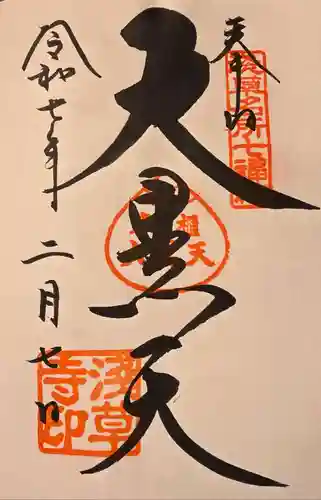 奉拝
浅草名所七福
大黒天
令和七年二月七日
浅草寺印